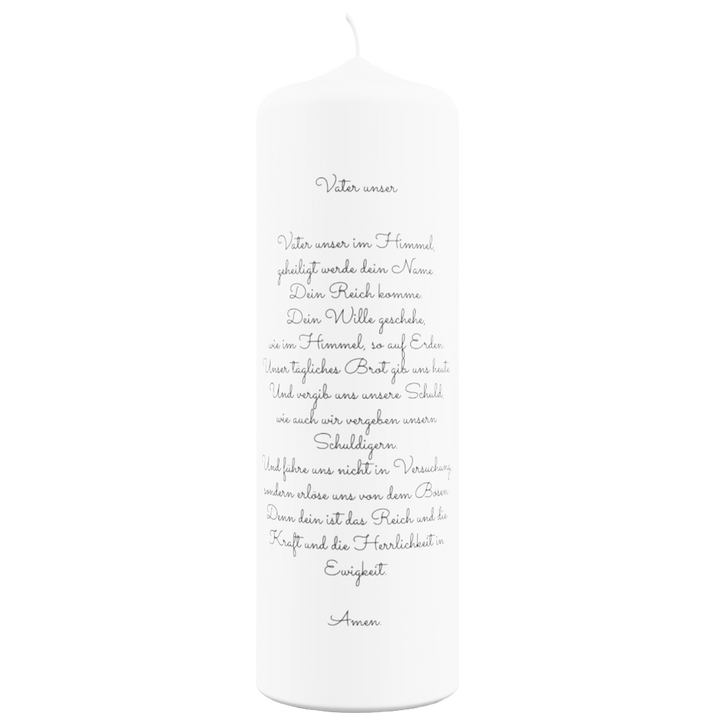 Vater unser
Vater unser im Himmel,
geheiligt werde dein Name.
Dein Reich komme.
Dein Wille geschehe,
wie im Himmel, so auf Erden.
Unser tägliches Brot gib uns heute.
Und vergib uns unsere Schuld,
wie auch wir vergeben unsern
Schuldigern.
Und führe uns nicht in Versuchung,
sondern erlöse uns von dem Bösen.
Denn dein ist das Reich und die
Kraft und die Herrlichkeit in
Ewigkeit.
Amen.